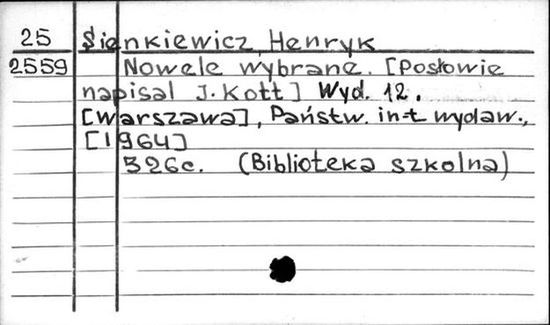 25 Sienkiewicz, Henryk
2559 Nowele wybrane. [Posłowie
napisał J. Kott] Wyd. 12.
[Warszawa], Państw. in-t wydaw.,
[1964]
326c. (Biblioteka szkolna)